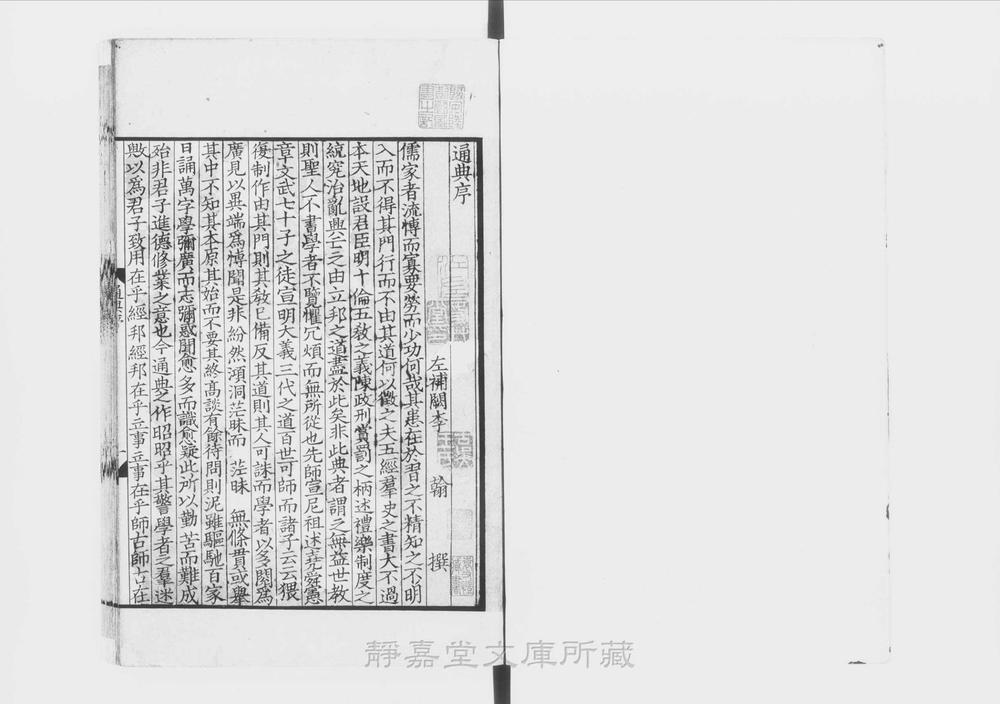 通典序
左補闕李　翰　撰
儒家者流博而寡要勞而少功何哉其患在於習之不精知之不明
入而不得其門行而不由其道何以徵之夫五經羣史之書大不過
本天地設君臣明十倫五敎之義陳政刑賞罰之柄述禮樂制度之
統究治亂興亡之由立邦之道盡於此矣非此典者謂之無益世敎
則聖人不書學者不覽懼冗煩而無所從也先師宣尼祖述堯舜憲
章文武七十子之徒宣明大義三代之道百世可師而諸子云云猥
復制作由其門則其敎已備反其道則其人可誅而學者以多閱爲
廣見以異端爲博聞是非紛然澒洞茫昧而　茫昧　無條貫或舉
其中不知其本原其始而不要其終髙談有餘待問則泥雖驅馳百家
日誦萬字學彌廣而志彌惑聞愈多而識愈疑此所以勤苦而難成
始非君子進德修業之意也今通典之作昭昭乎其警學者之羣迷
歟以爲君子致用在乎經邦經邦在乎立事立事在乎師古師古在
靜嘉堂文庫所藏